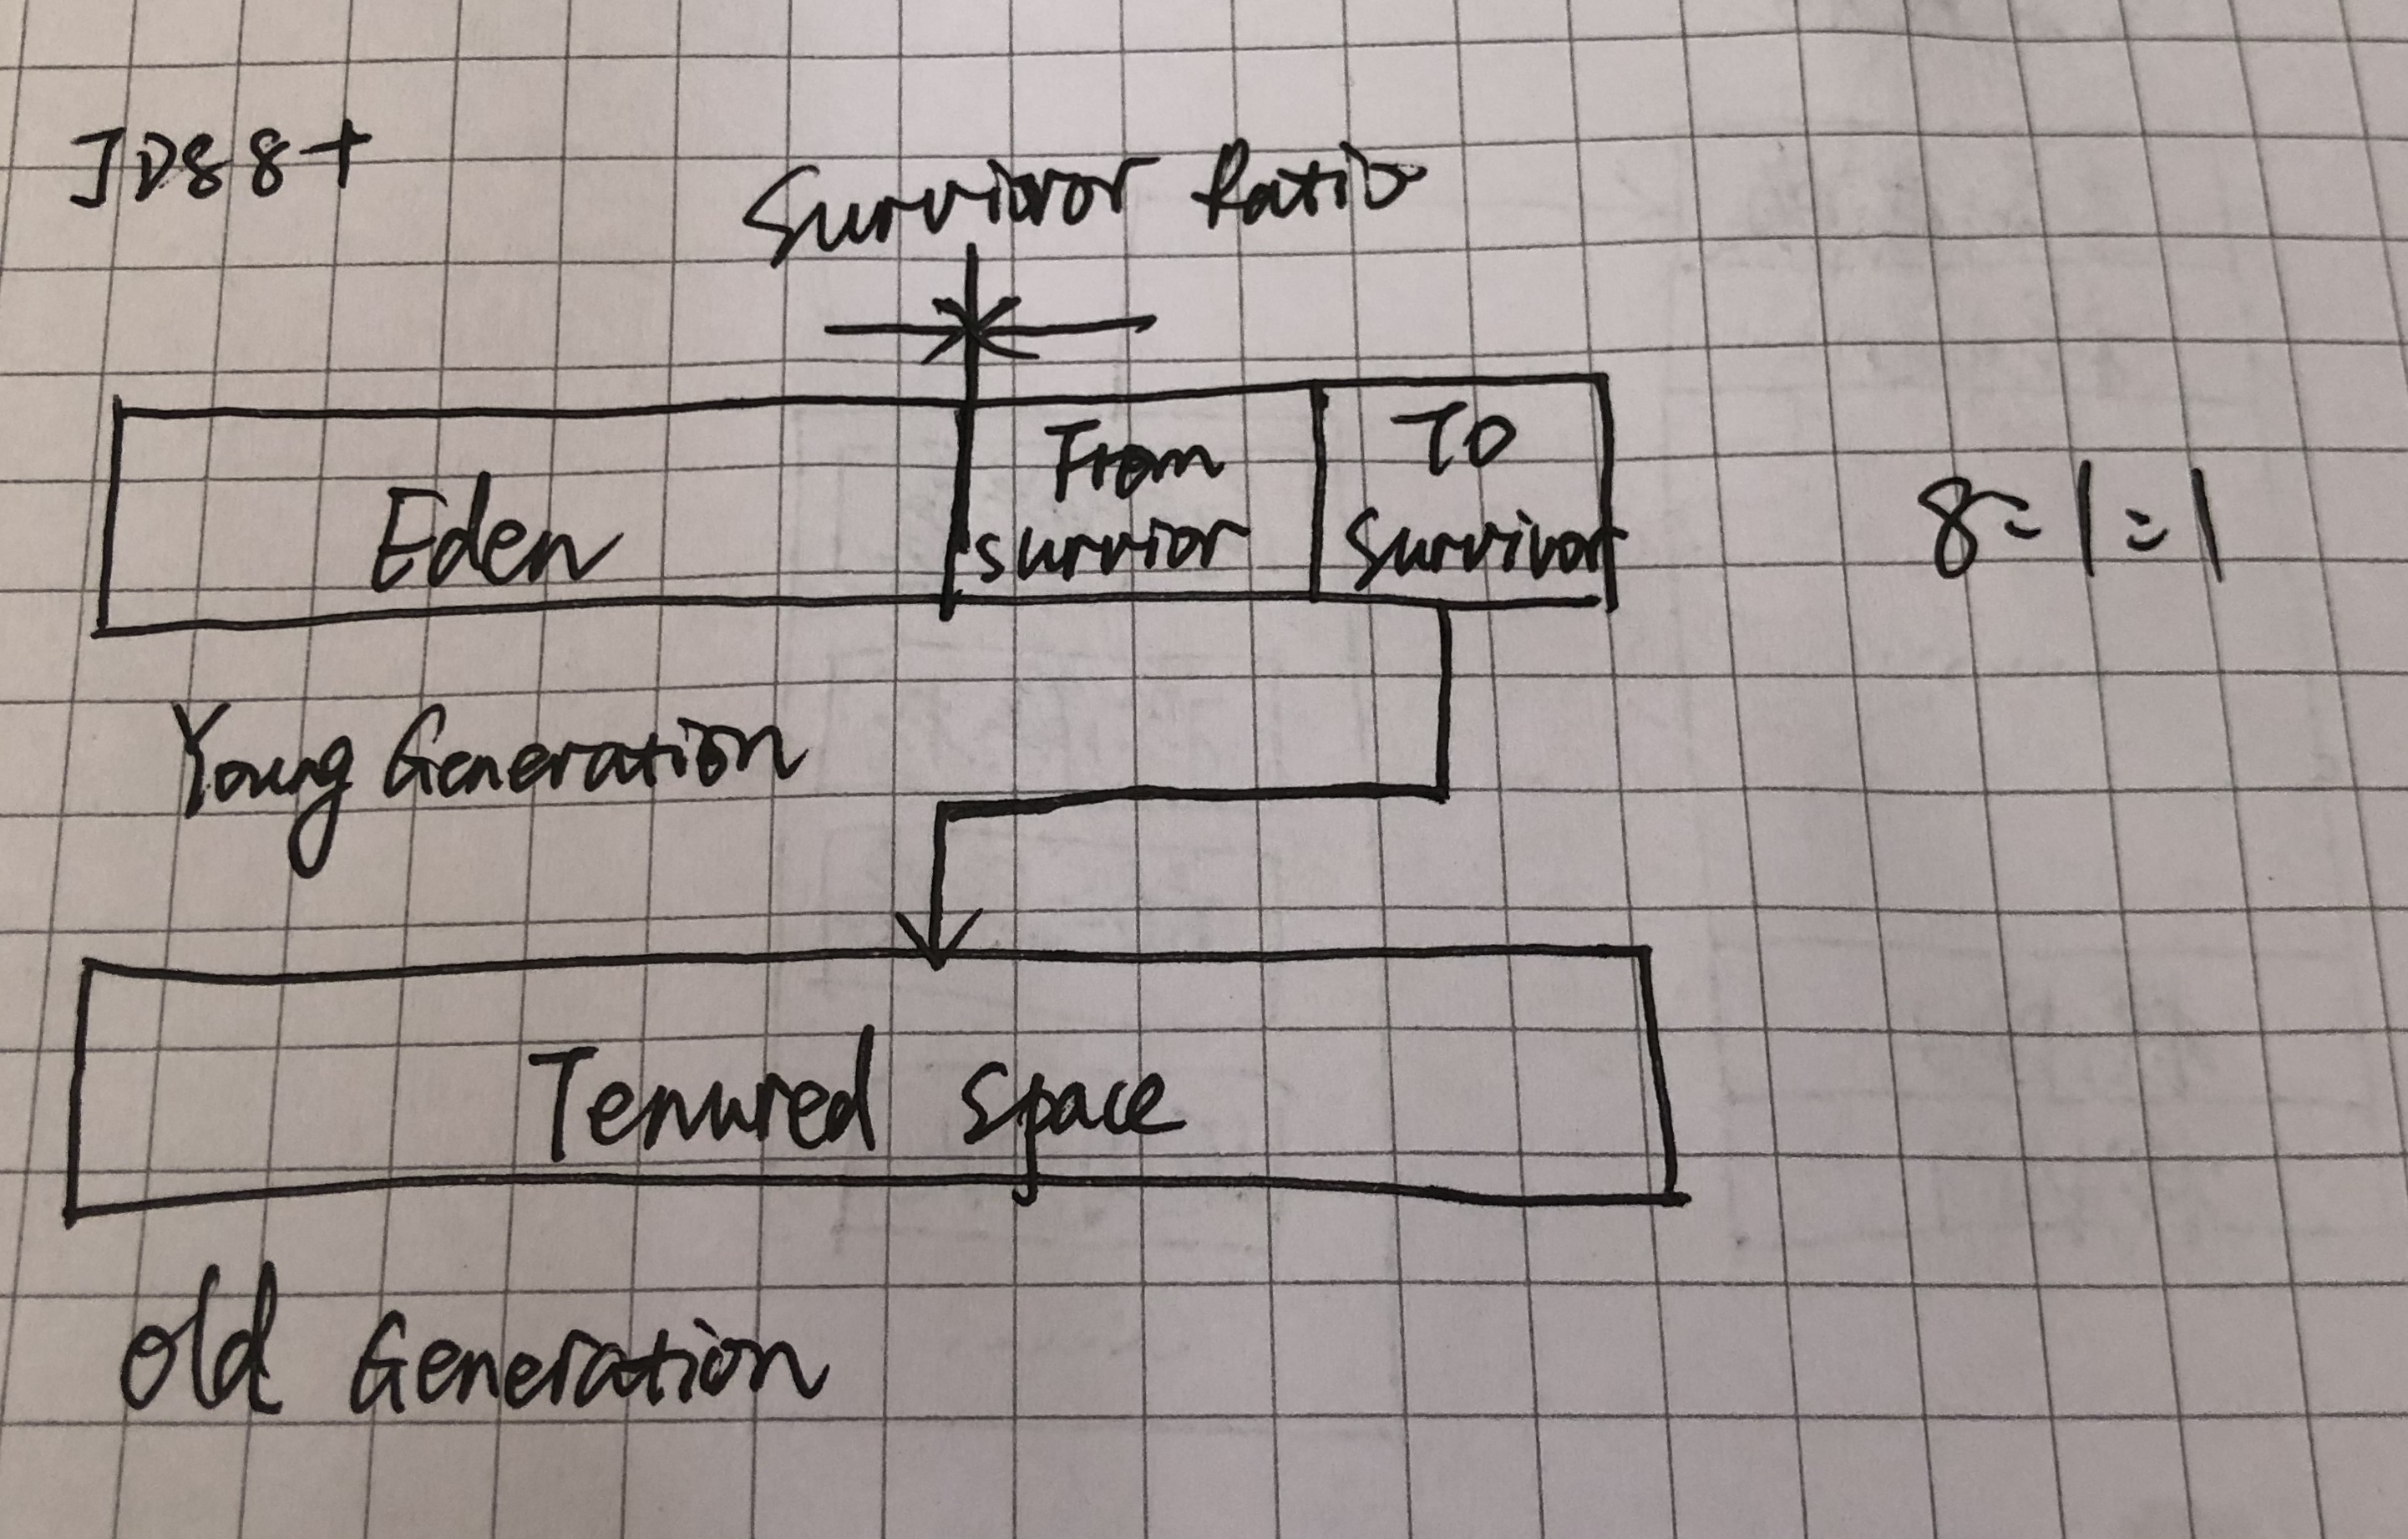 JD88+
Survivor Ratio
Eden
From
survior
To
Survivor
8:1:1
Young Generation
Tenured Space
old Generation